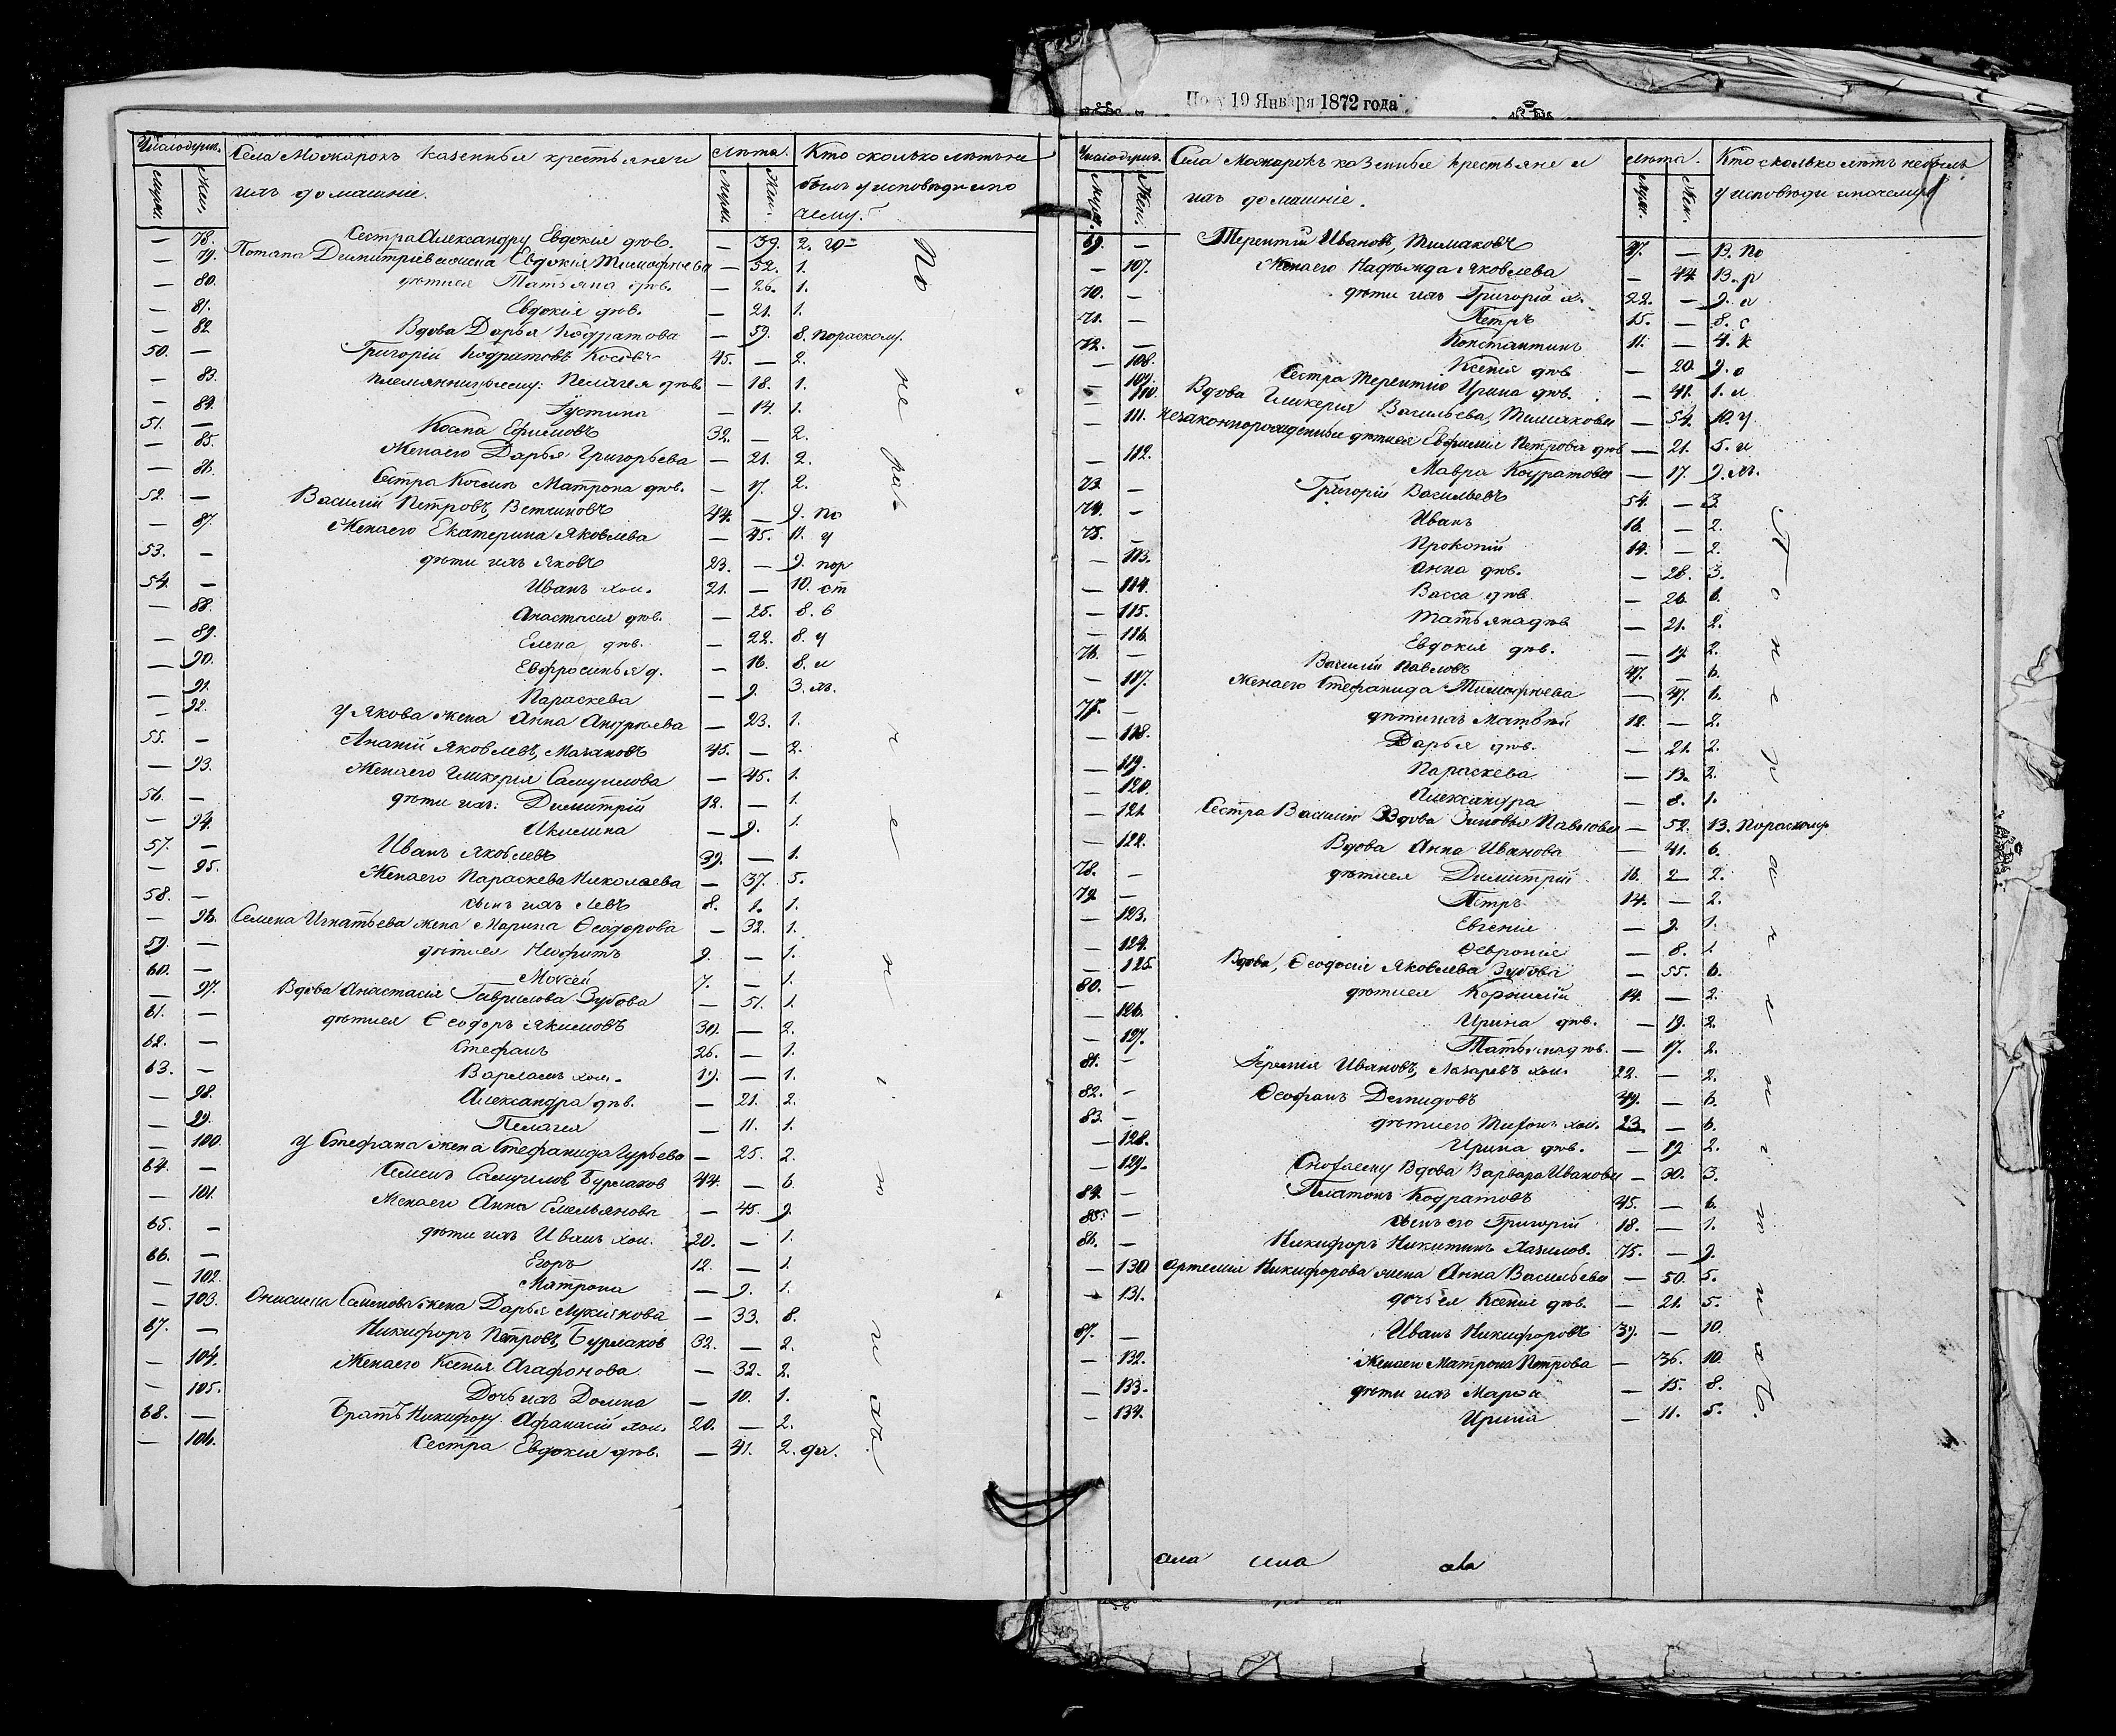 По у 19 Января 1872 года
Число душъ. Села Можарокъ казенныя крестьяне и лѣта. Кто сколько лѣтъ не
Муж. Жен. ихъ домашніе. Муж. Жен. былъ у исповѣди и по
чему.
— 78. Сестра Александру Евдокія дѣв. — 39. 2.
— 79. Потапа Димитріева жена Евдокія Тимофѣева — 52. 1.
— 80. дѣти ея Татьяна дѣв. — 26. 1.
— 81. Евдокія дѣв. — 21. 1.
— 82. Вдова Дарья Кодратова — 59. 8. По раскол.
50. — Григорій Кодратовъ Косовъ 45. — 2.
— 83. племянницы ему: Пелагея дѣв. — 18. 1.
— 84. Іустина — 14. 1.
51. — Косма Ефимовъ 32. — 2.
— 85. Жена его Дарья Григорьева — 21. 2.
— 86. Сестра Космы Матрона дѣв. — 17. 2.
52. — Василій Петровъ, Веткиновъ 44. — 9. по
— 87. Жена его Екатерина Яковлева — 45. 11. у
53. — дѣти ихъ Яковъ 23. — 9. пор
54. — Иванъ хол. 21. — 10. ст
— 88. Анастасія дѣв. — 25. 8. в
— 89. Елена дѣв. — 22. 8. у
— 90. Евфросинья д. — 16. 8. и
— 91. Параскева — 9. 3. лъ.
— 92. У Якова жена Анна Андреева — 23. 1.
55. — Ананій Яковлевъ, Мазановъ 45. — 2.
— 93. Жена его Гликерія Самуилова — 45. 1.
56. — дѣти ихъ: Димитрій 12. — 1.
— 94. Акилина — 9. 1.
57. — Иванъ Яковлевъ 39. — 1.
— 95. Жена его Параскева Николаева — 37. 5.
58. — сынъ ихъ Левъ 8. 1. 1.
— 96. Семена Игнатьева жена Марина Ѳеодорова — 32. 1.
59. — дѣти ея Неофитъ 9. — 1.
60. — Моѵсей 7. — 1.
— 97. Вдова Анастасія Гаврилова Зубова — 51. 1.
61. — дѣти ея Ѳеодоръ Якимовъ 30. — 2.
62. — Стефанъ 26. — 1.
63. — Варлаамъ хол. 19. — 1.
— 98. Александра дѣв. — 21. 2.
— 99. Пелагея — 11. 1.
— 100. У Стефана жена Стефанида Гурьева — 25. 2.
64. — Семенъ Самуиловъ Бурлаковъ 44. — 6.
— 101. Жена его Анна Емельянова — 45. 9.
65. — дѣти ихъ Иванъ хол. 20. — 1.
66. — Егоръ 12. — 1.
— 102. Матрона — 9. 1.
— 103. Онисима Самсонова жена Дарья Лукіянова — 33. 8.
67. — Никифоръ Петровъ, Бурлаковъ 32. — 2.
— 104. Жена его Ксенья Агафонова — 32. 2.
— 105. Дочь ихъ Домна — 10. 1.
68. — Братъ Никифору Афанасій хол. 20. — 2.
— 106. Сестра Евдокія дѣв. — 41. 2.
По нераченію ихъ.
Число душъ. Села Можарокъ казенныя крестьяне и лѣта. Кто сколько лѣтъ не былъ
Муж. Жен. ихъ домашніе. Муж. Жен. у исповѣди и почему
69. — Терентій Ивановъ, Тимаковъ 47. — 13. По
— 107. Жена его Надежда Яковлева — 44. 13. р
70. — дѣти ихъ Григорій х. 22. — 9. а
71. — Петръ 15. — 8. с
72. — Константинъ 11. — 4. к
— 108. Ксенія дѣв — 20. 9. о
— 109. Сестра Терентію Ирина дѣв. — 41. 1. л
— 110. Вдова Гликерія Васильева, Тимакова — 54. 10. у
— 111. незаконнорожденные дѣти ея Евфимія Петрова дѣв — 21. 5. и
— 112. Мавра Кондратова — 17. 9. лъ.
73. — Григорій Васильевъ 54. — 3.
74. — Иванъ 16. — 2.
75. — Прокопій 14. — 2.
— 113. Анна дѣв. — 28. 3.
— 114. Васса дѣв — 26. 6.
— 115. Татьяна дѣв — 21. 2.
— 116. Евдокія дѣв. — 19. 2.
76. — Василій Павловъ 47. — 6.
— 117. Жена его Стефанида Тимофѣева — 47. 6.
77. — дѣти ихъ Матвѣй 12. — 2.
— 118. Дарья дѣв. — 21. 2.
— 119. Параскева — 13. 2.
— 120. Александра — 8. 1.
— 121. Сестра Василію Вдова Зиновья Павлова — 52. 13. По раскол
— 122. Вдова Анна Иванова — 41. 6.
78. — дѣти ея Димитрій 16. 2 2.
79. — Петръ 14. — 2.
— 123. Евгенія — 9. 1.
— 124. Ѳевронія — 8. 1.
— 125. Вдова, Ѳеодосія Яковлева Зубова — 55. 6.
80. — дѣти ея Корнилій 14. — 2.
— 126. Ирина дѣв. — 19. 2.
— 127. Татьяна дѣв. — 17. 2.
81. — Іеремія Ивановъ, Лазаревъ хол. 22. — 2.
82. — Ѳеофанъ Демидовъ 49. — 6.
83. — дѣти его Тифонъ хол. 23. — 6.
— 128. Ирина дѣв. — 19. 2.
— 129. Сноха ему Вдова Варвара Иванова — 30. 3.
84. — Платонъ Кодратовъ 45. — 6.
85. — сынъ его Григорій 18. — 1.
86. — Никифоръ Никитинъ Хазилов. 75. — 9.
— 130. Артемія Никифорова жена Анна Васильева — 50. 5.
— 131. дочь ея Ксенія дѣв. — 21. 5.
87. — Иванъ Никифоровъ 39. — 10.
— 132. Жена его Матрона Петрова — 36. 10.
— 133. дѣти ихъ Марья — 15. 8.
— 134. Ирина — 11. 5.
По нераченію ихъ.